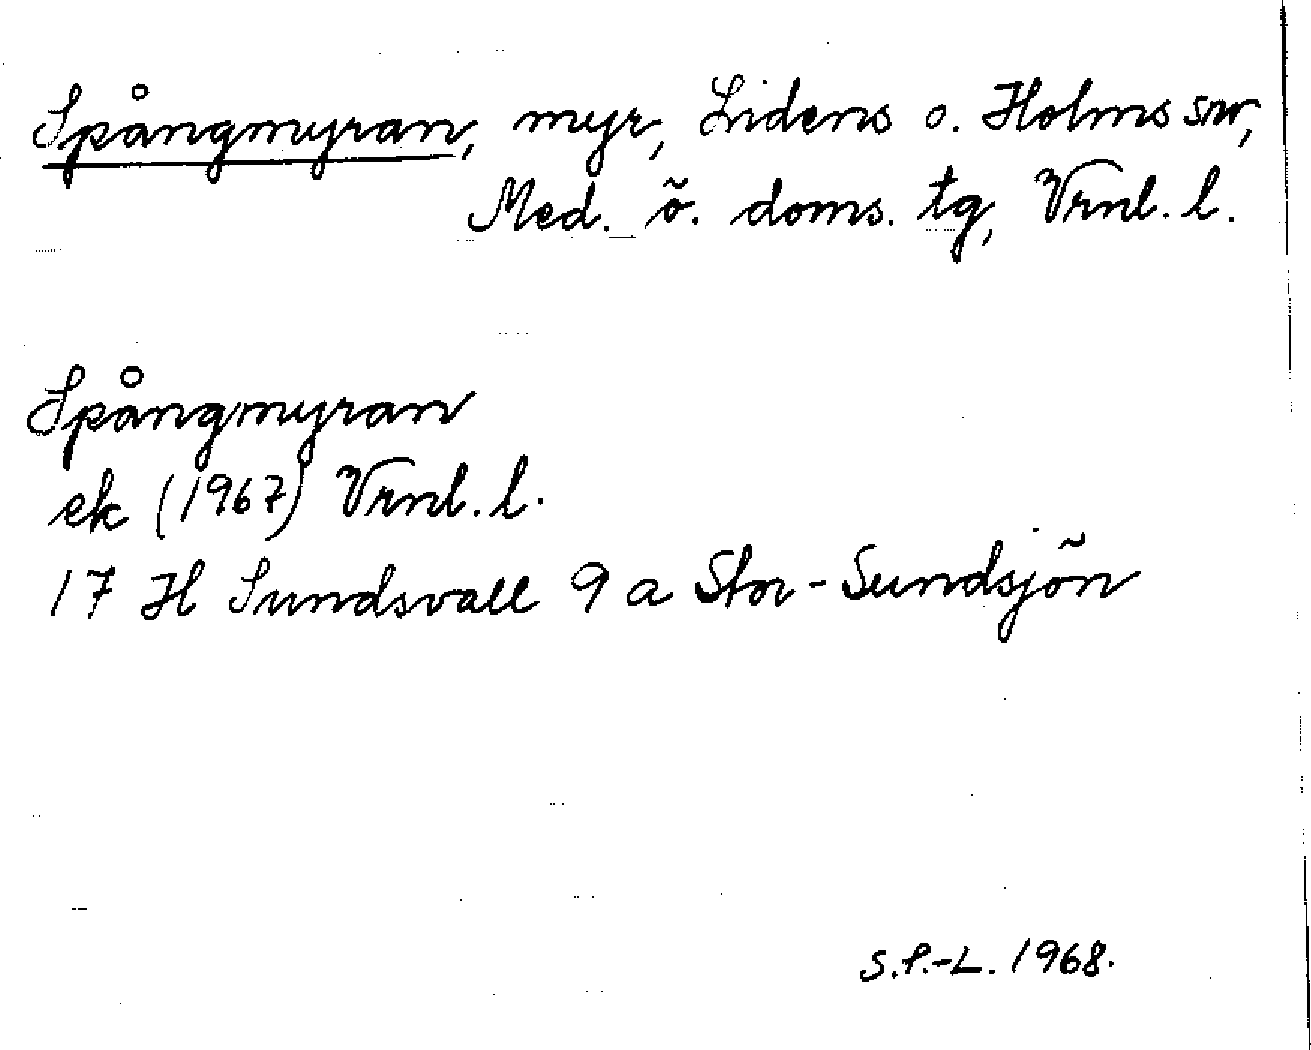 Spångmyran, myr, Lidens o. Holms snr,
Med. ö. doms. tg, Vrnl. l.
Spångmyran
ek (1967) Vrnl. l.
17 H Sundsvall 9 a Stor-Sundsjön
S.P.-L. 1968.